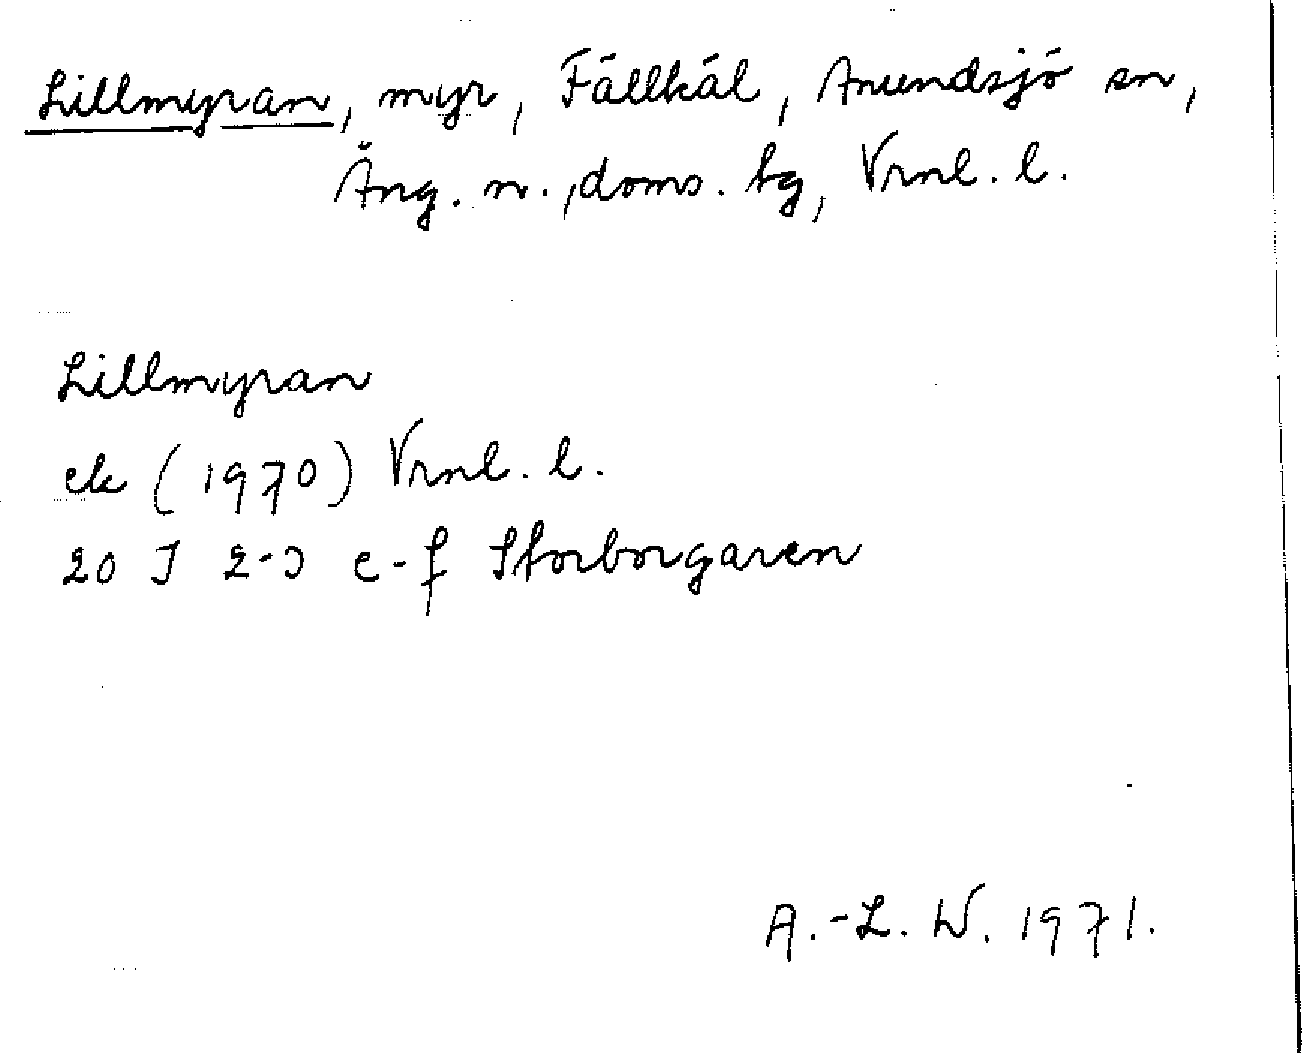 Lillmyran, myr, Fällkål, Anundsjö sn,
Ång. n., doms. bg, Vrnl. l.
Lillmyran
ek (1970) Vrnl. l.
20 J 2-3 e-f Storborgaren
A.-L. W. 1971.